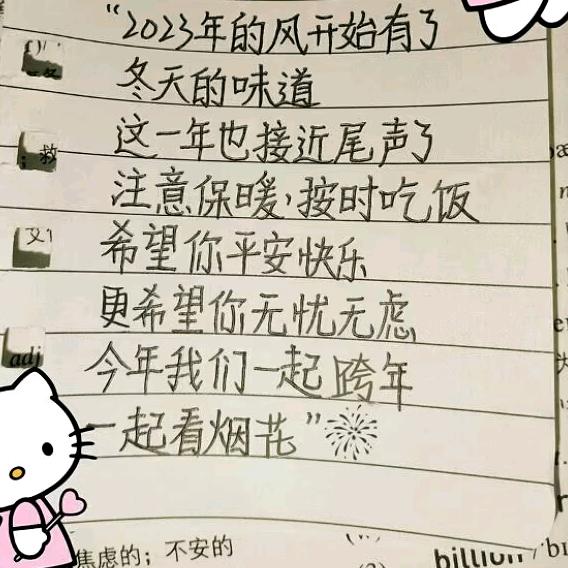 “2023年的风开始有了
冬天的味道
这一年也接近尾声了
注意保暖,按时吃饭
希望你平安快乐
更希望你无忧无虑
今年我们一起跨年
一起看烟花”
; 救
adj
焦虑的；不安的
billion